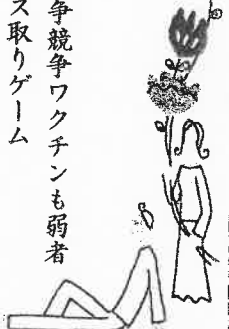 争競争ワクチンも弱者
ス取りゲーム